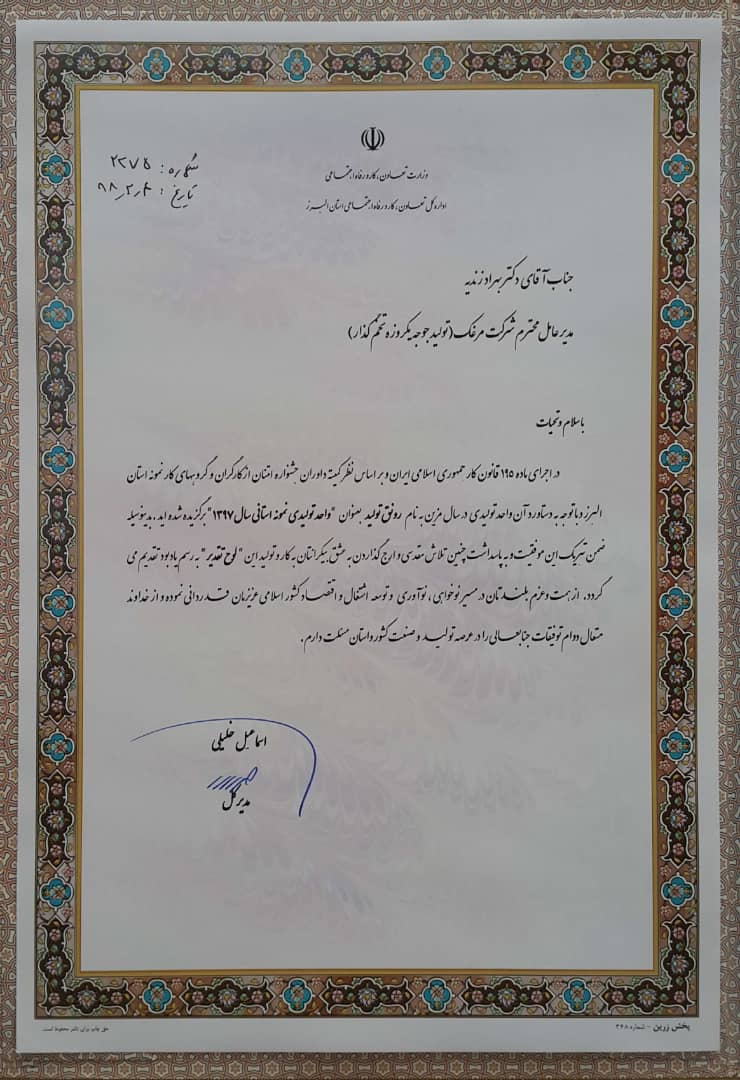 شماره: ۲۲۷۵
تاریخ: ۹۸,۳,۴
وزارت تعاون، کار و رفاه اجتماعی
اداره کل تعاون، کار و رفاه اجتماعی استان البرز
جناب آقای دکتر بهراد زندیه
مدیر عامل محترم شرکت مرغک (تولید جوجه یکروزه تخم گذار)
با سلام و تحیات
در اجرای ماده ۱۹۵ قانون کار جمهوری اسلامی ایران و بر اساس نظر کمیته داوران جشنواره امتنان از کارگران و گروههای کار نمونه استان
البرز و با توجه به دستاورد آن واحد تولیدی در سال مزین به نام رونق تولید بعنوان "واحد تولیدی نمونه استانی سال ۱۳۹۷" برگزیده شده اید، بدینوسیله
ضمن تبریک این موفقیت و به پاسداشت چنین تلاش مقدسی و ارج گذاردن به عشق بیکرانتان به کار و تولید این "لوح تقدیر" به رسم یادبود تقدیم می
گردد. از همت و عزم بلندتان در مسیر نوخواهی، نوآوری و توسعه اشتغال و اقتصاد کشور اسلامی عزیزمان قدردانی نموده و از خداوند
متعال دوام توفیقات جنابعالی را در عرصه تولید و صنعت کشور و استان مسئلت دارم.
اسماعیل خلیلی
مدیرکل
پخش زرین - شماره ۳۶۸
حق چاپ برای ناشر محفوظ است.